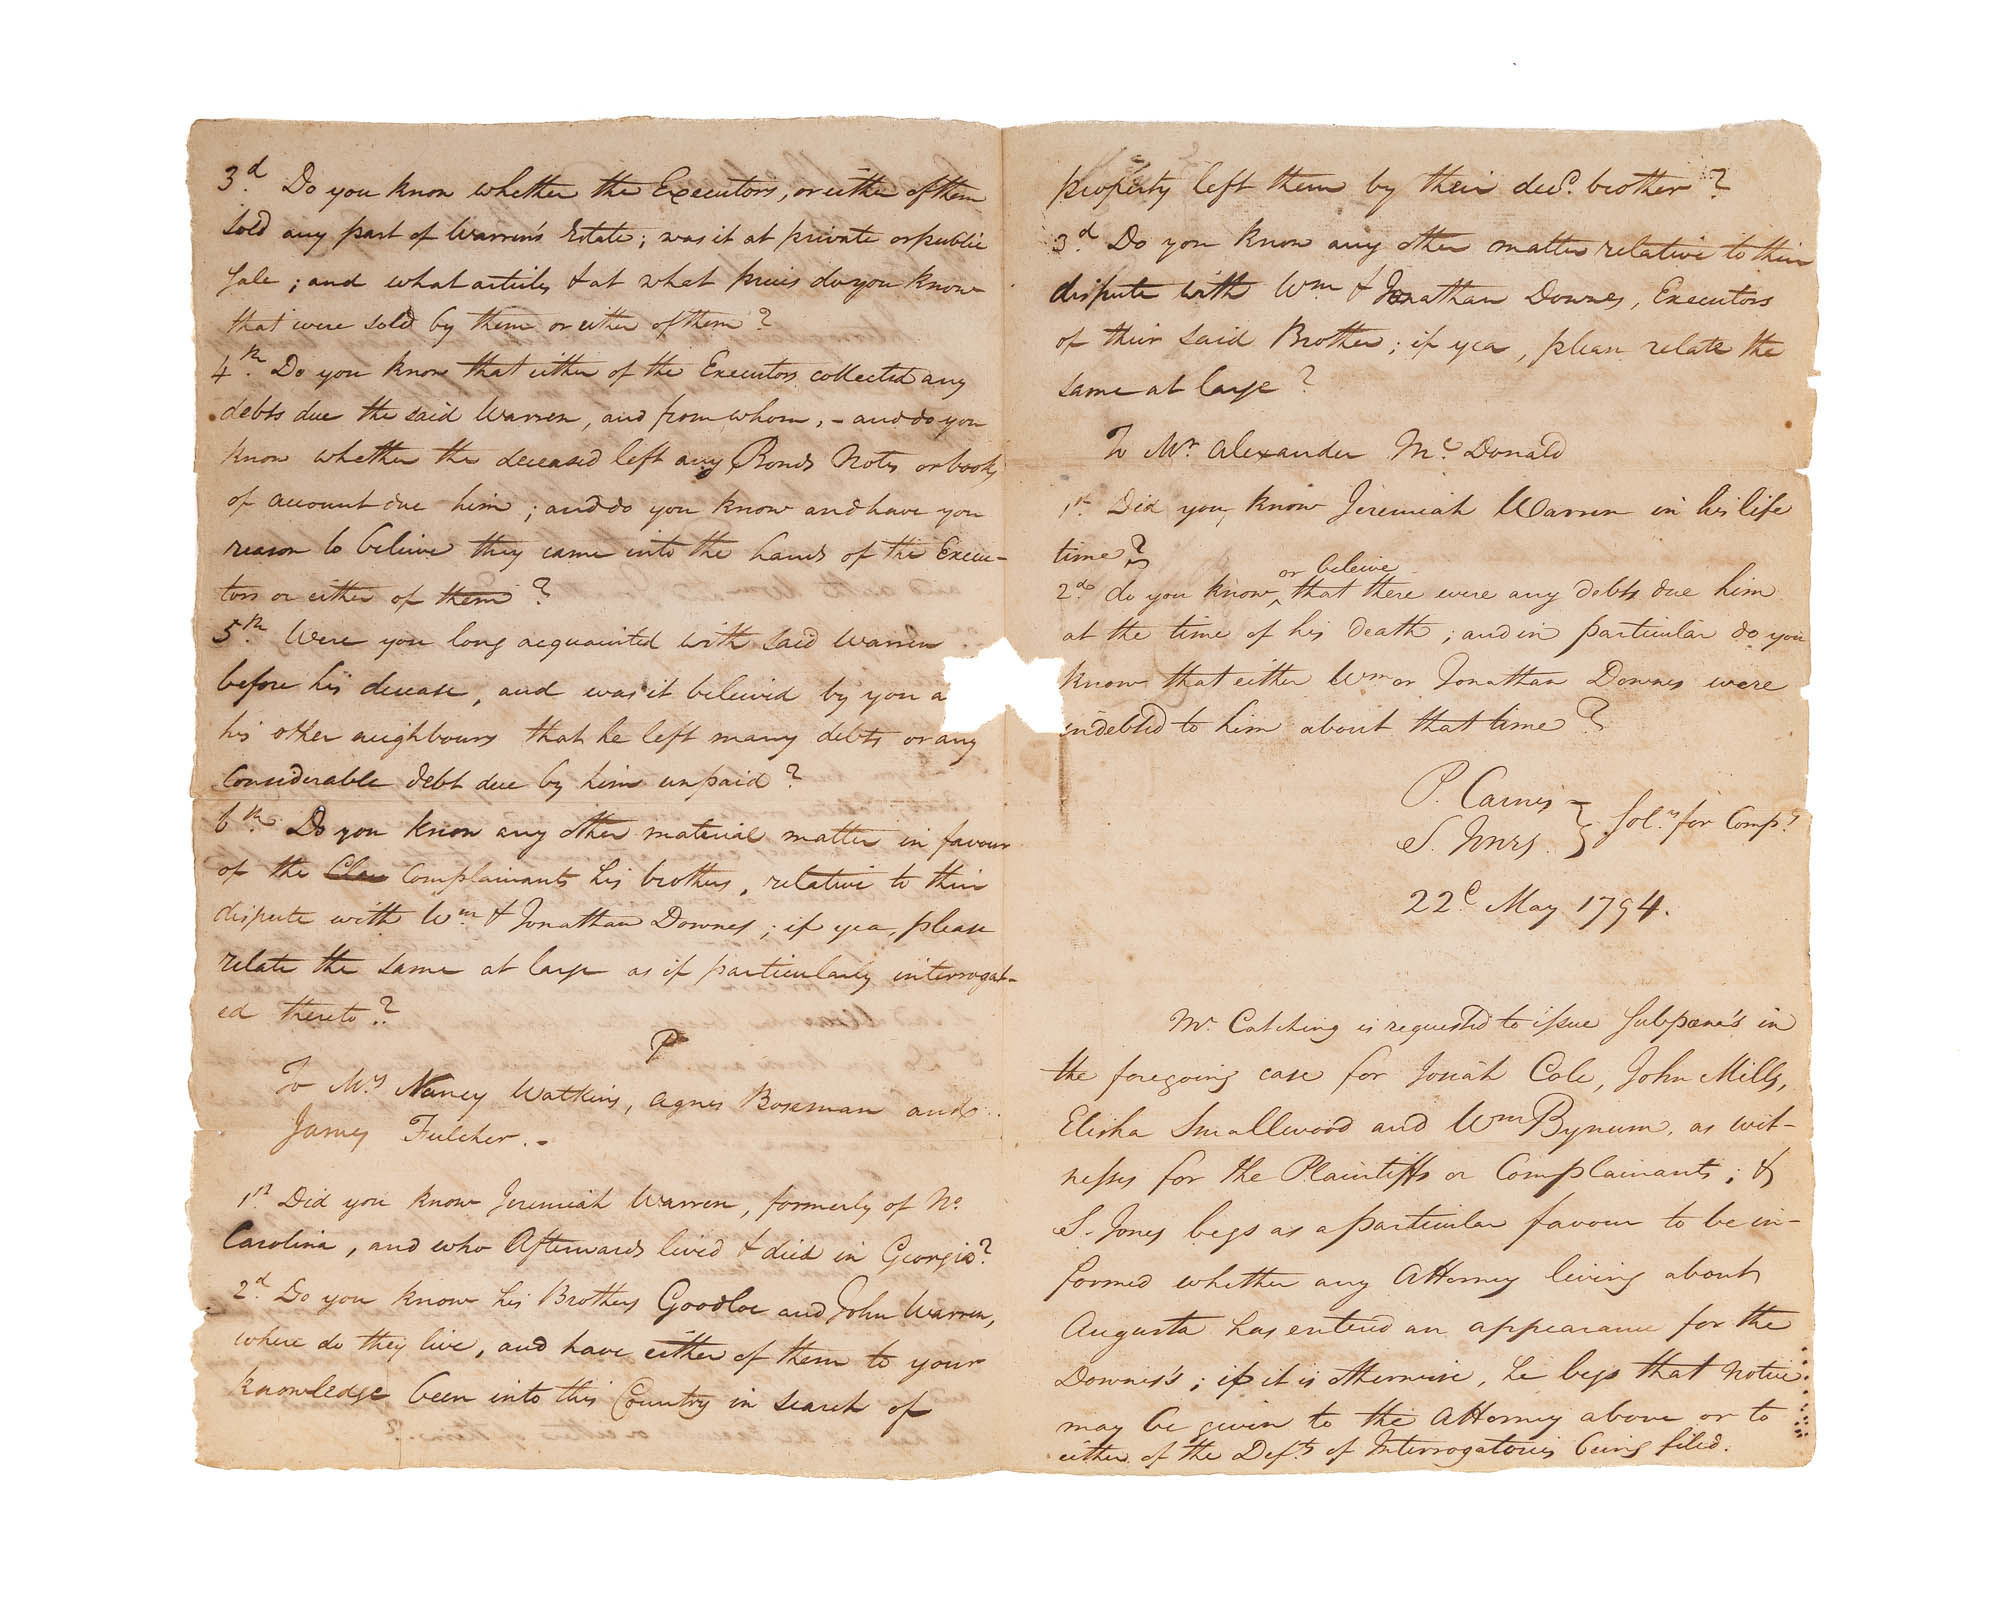 3.d Do you know whether the Executors, or either of them
sold any part of Warren's Estate; was it at private or public
sale; and what articles & at what prices do you know
that were sold by them or either of them?
4.th Do you know that either of the Executors collected any
debts due the said Warren, and from whom, - and do you
know whether the deceased left any Bonds Notes or books
of account due him; and do you know and have you
reason to beleive they came into the hands of the Execu-
tors or either of them?
5.th Were you long acquainted with said Warren
before his decease, and was it beleived by you a
his other neighbours that he left many debts or any
Considerable debt due by him unpaid?
6.th Do you know any other material matter in favour
of the Clai Complainants his brothers, relative to their
dispute with Wm & Jonathan Downes; if yea, please
relate the same at large as if particularly interrogat-
ed thereto?
To Mrs Nancy Watkins, Agnes Boseman and
James Fulcher. -
1st Did you know Jeremiah Warren, formerly of No.
Carolina, and who Afterwards lived & died in Georgia?
2.d Do you know his Brothers Goodloe and John Warren,
where do they live, and have either of them to your
knowledge been into this Country in search of
property left them by their decd. brother?
3.d Do you know any other matter relative to their
dispute with Wm & Jonathan Downes, Executors
of their said Brother; if yea, please relate the
same at large?
To Mr Alexander Mc Donald
1st. Did you know Jeremiah Warren in his life
time?
or beleive
2.d do you know ^ that there were any debts due him
at the time of his death; and in particular do you
know that either Wm or Jonathan Downes were
indebted to him about that time?
P. Carnes -
S. Jones } Sol.rs for Comp.ts
22.d May 1794.
Mr Catching is requested to issue Subpœna's in
the foregoing case for Josiah Cole, John Mills,
Elisha Smallwood and Wm Bynum, as wit-
nesses for the Plaintiffs or Complainants; &
S. Jones begs as a particular favour to be in-
formed whether any Attorney living about
Augusta has entered an appearance for the
Downes's; if it is otherwise, he begs that notice
may be given to the Attorney above or to
either of the Def.ts of Interrogatories being filed.